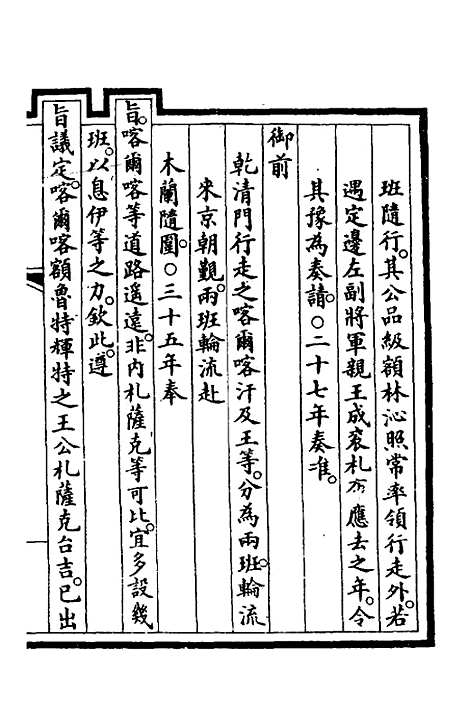 班隨行。其公品級額林沁照常率領行走外。若
遇定邊左副將軍親王成袞札布應去之年。令
其豫為奏請。○二十七年奏准。
御前
乾清門行走之喀爾喀汗及王等。分為兩班。輪流
來京朝覲。兩班輪流赴
木蘭隨圍。○三十五年奉
旨。喀爾喀等道路遥遠。非内札薩克等可比。宜多設幾
班。以息伊等之力。欽此遵
旨議定。喀爾喀額魯特輝特之王公札薩克台吉。已出